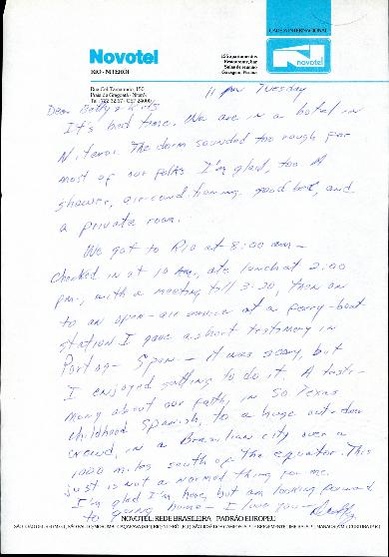 CADEIA INTERNACIONAL
Novotel
RIO - NITEROI
novotel
11 pm Tuesday
Dear Betty & Kids
It's bed time. We are in a hotel in
Niteroi. The dorm sounded too rough for
most of our folks. I'm glad, too. A
shower, air-conditioning, good bed, and
a private room.
We got to Rio at 8:00 am-
checked in at 10 am, ate lunch at 2:00
pm, with a meeting till 3:30, then on
to an open-air service at a ferry-boat
station. I gave a short testimony in
Portug- Span- - It was scary, but
I enjoyed getting to do it. A testi-
mony about our faith, in So. Texas
childhood Spanish, to a huge out-door
crowd, in a Brazilian city over a
1000 miles south of the equator. This
just is not a normal thing for me.
I'm glad I'm here, but am looking forward
to going home - I love you -
NOVOTEL: REDE BRASILEIRA PADRÃO EUROPEU